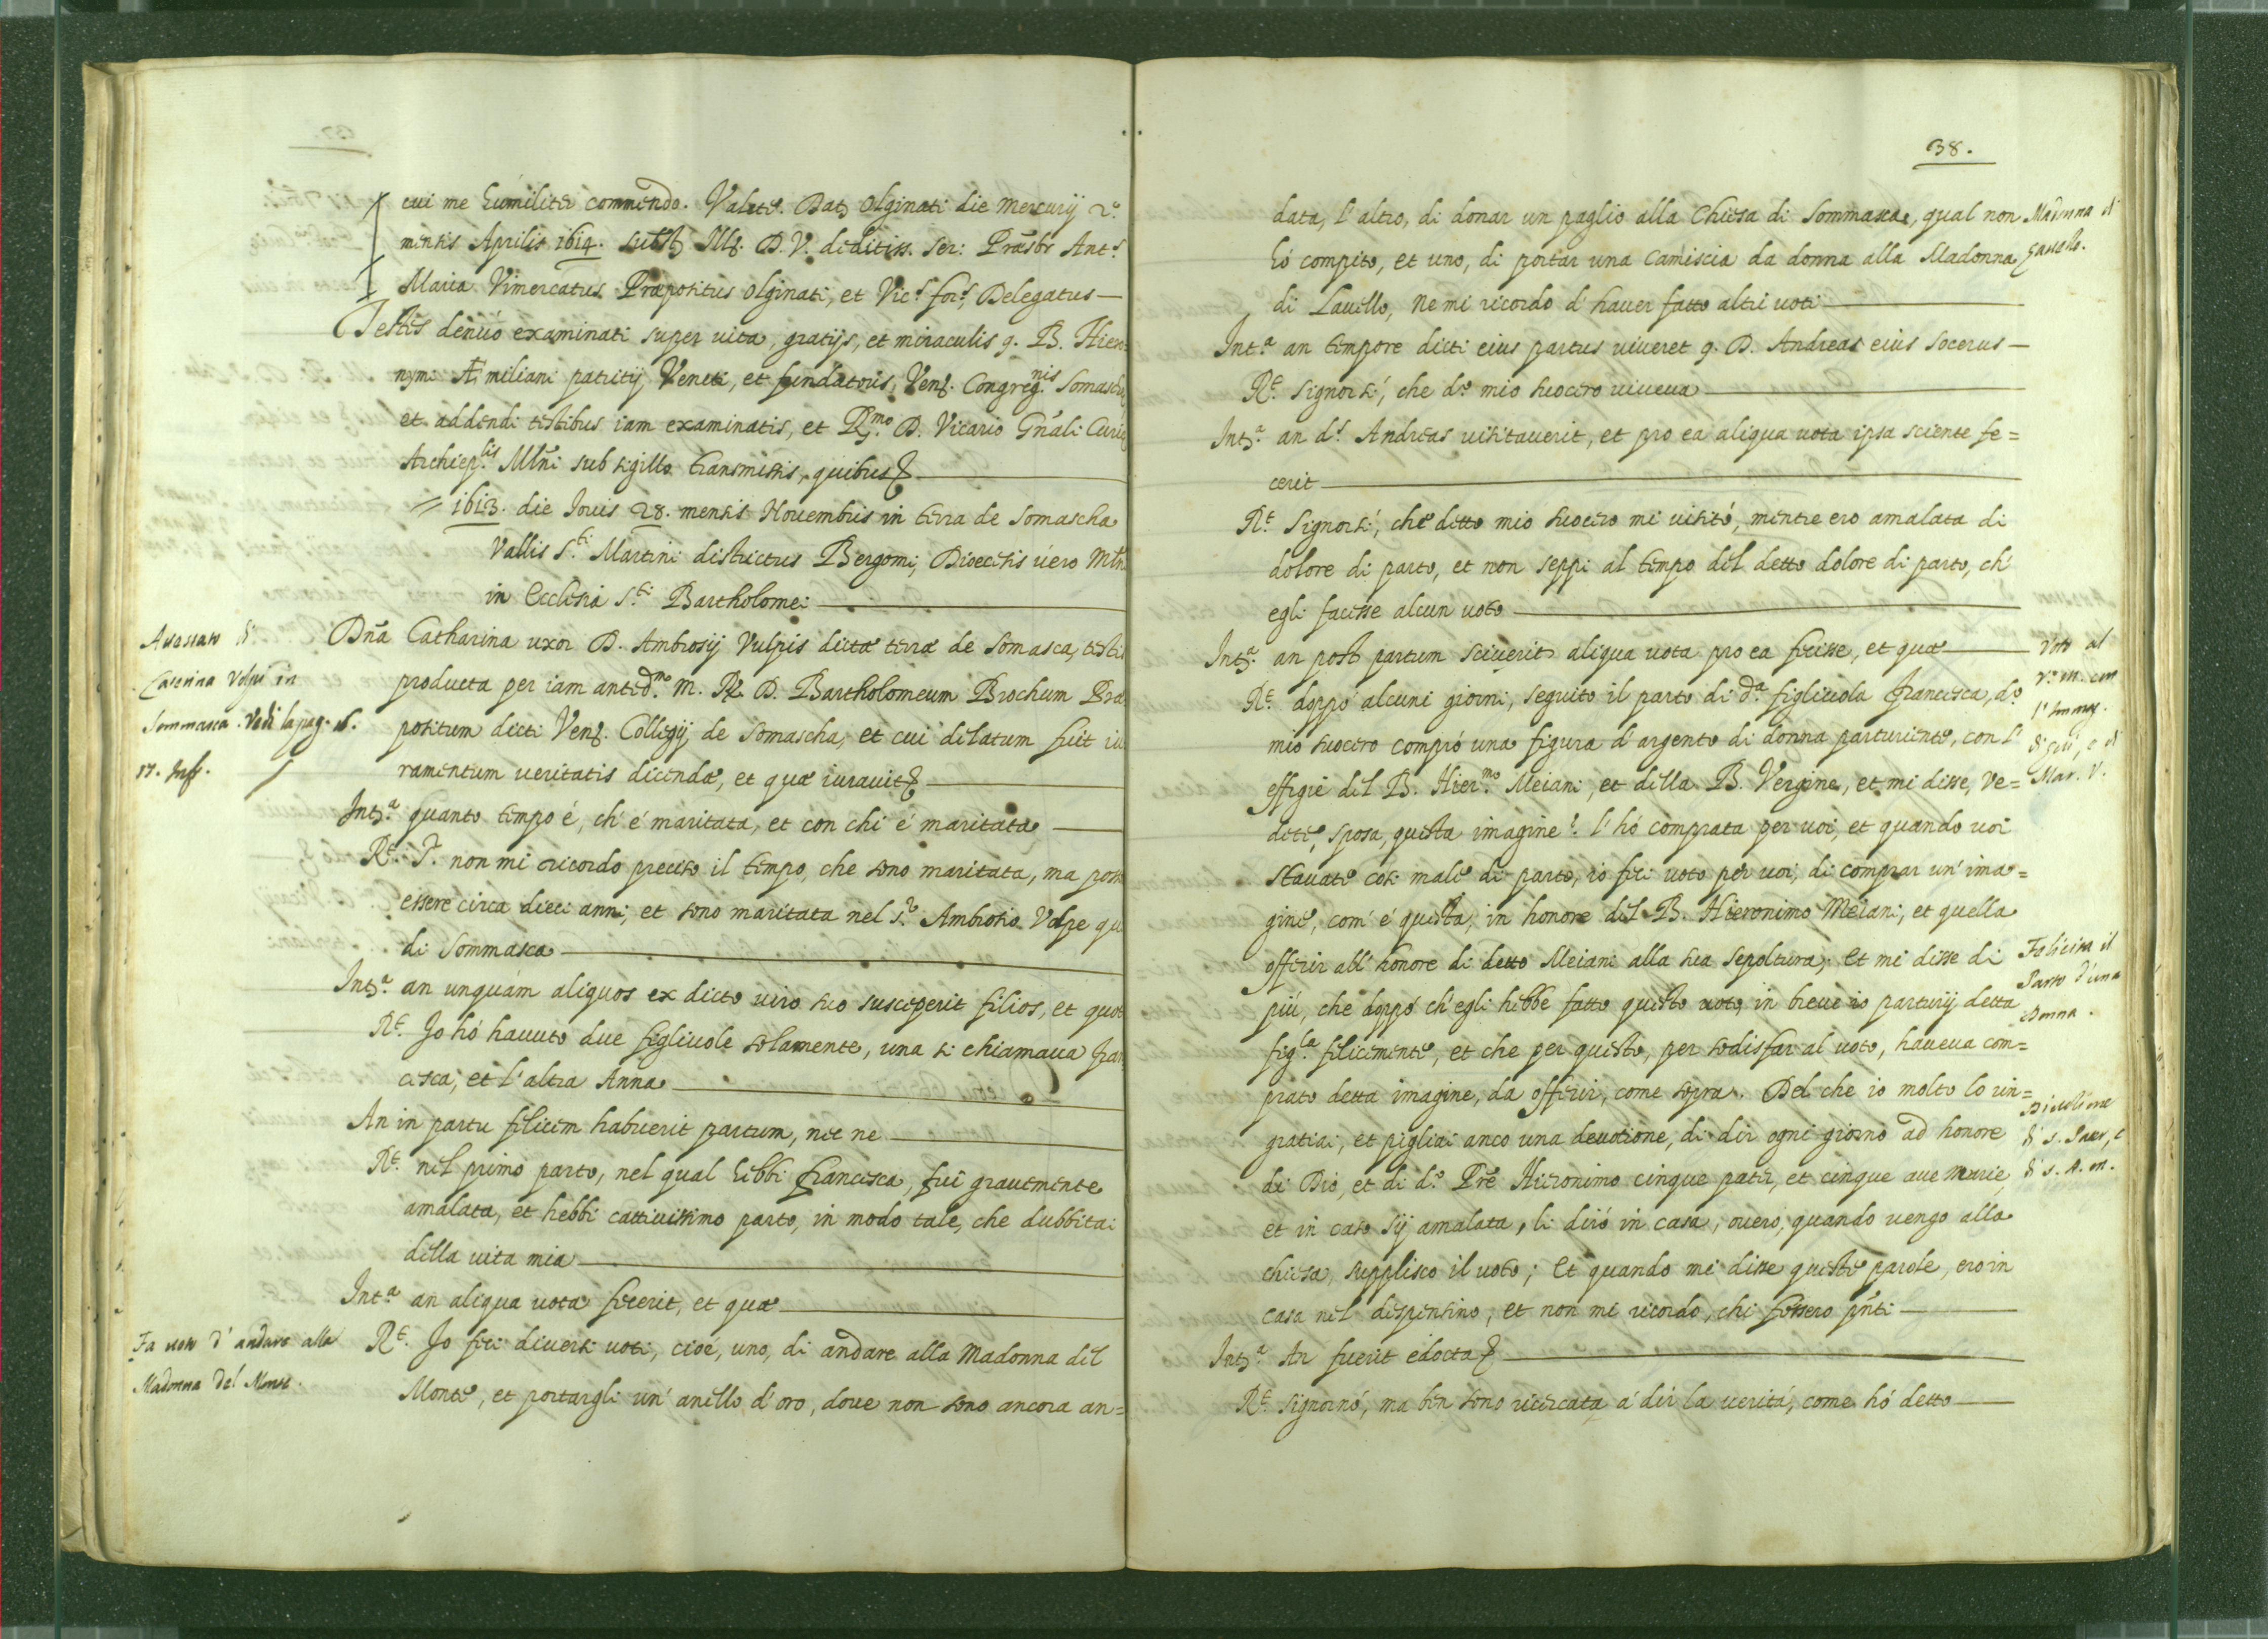 cui me humiliter commendo. Valete. Dat Olginati die Mercurij 2.º
mensis Aprilis 1614. Subst Ill. D. V. dedditiss. Ser: Præsbr Ant.s
Maria Vimercatus Præpositus Olginati, et Vic.s for.s Delegatus
Testes denuò examinati super vita, gratijs, et miraculis q. B. Hiero
nymi Æmiliani patritij Veneti, et fundatoris Ven. Congreg.nis Somaschæ,
et addendi testibus iam examinatis, et R.mo D. Vicario Gñali Curiæ
Archiep.lis Mlñi sub sigillo transmissis, quibus
1613. die Iouis 28. mensis Nouembris in terra de Somascha
Vallis S.ti Martini districtus Bergomi, Dioecesis uero Mlñ
in Ecclesia S.ti Bartholomei
Dña Catharina uxor D. Ambrosij Vulpis dictæ terræ de Somasca, testis
Caterina Volpi in
producta per iam anted.m M. R. D. Bartholomeum Brochum Præ
Sommasca. Vedi la pag.
positum dicti Ven. Collegij de Somascha, et cui delatum fuit iu
17. Inf.
ramentum ueritatis dicendæ, et quæ iurauit
Int.a quanto tempo é, ch' é maritata, et con chi é maritata
R.t P. non mi ricordo preciso il tempo, che sono maritata, ma posso
essere circa dieci anni; et sono maritata nel S.r Ambrosio Volpe qui
di Sommasca
Int.a an unquàm aliquos ex dicto uiro suo susceperit filios, et quot
R.t Jo hó hauuto due figliuole solamente, una si chiamaua Fran
cisca, et l'altra Anna
An in partu felicem habuerit partum, nec ne
R.t nel primo parto, nel qual hebbi Francesca, fui grauemente
amalata, et hebbi cattiuissimo parto, in modo tale, che dubbitai
della uita mia
Int.a an aliqua uota fecerit, et quæ
Fa uoto d'andare alla
R.t Jo feci diuersi uoti, cioé, uno, di andare alla Madonna del
Madonna del Monte.
Monte, et portargli un' anello d'oro, doue non sono ancora an=
38.
data, l'altro, di donar un paglio alla Chiesa di Sommasca, qual non
Madonna di
hó compito, et uno, di portar una Camiscia da donna alla Madonna
di Lauello, ne mi ricordo d' hauer fatto altri uoti
Int.a an tempore dicti eius partus uiueret q. D. Andreas eius Socerus
R.t Signorsi, che d.º mio suocero uiueua
Int.a an d.s Andreas uisitauerit, et pro eà aliqua uota ipsa sciente fe=
cerit
R.t Signorsi, che detto mio suocero mi uisitó, mentre ero amalata di
dolore di parto, et non seppi al tempo del detto dolore di parto, ch'
egli facesse alcun uoto
Int.a an post partum sciuerit aliqua uota pro ea fecisse, et quæ
Voto al
R.t doppó alcuni giorni, seguito il parto di d.a figliuola Francesca, d.º
mio suocero compró una figura d'argento di donna parturiente, con l'
effigie del B. Hier.mo Meiani, et della B. Vergine, et mi disse, ve=
Mar. V.
dete, sposa, questa imagine? l' hó comprata per uoi, et quando uoi
stauate cosi male di parto, io feci uoto per uoi, di comprar un' ima=
gine, com' é questa, in honore del B. Hieronimo Meiani, et quella
offerir all' honore di detto Meiani alla sua sepoltura; Et mi disse di
Felicita il
piú, che doppó ch'egli hebbe fatto questo uoto, in breue io parturij detta
Parto d'una
Donna.
fig.la felicemente, et che per questo, per sodisfar al uoto, haueua com=
prato detta imagine, da offerir, come sopra. Del che io molto lo rin=
gratiai, et pigliai anco una deuotione, di dir ogni giorno ad honore
Diuotione
di Dio, et di d.º Pre Hieronimo cinque pater, et cinque aue Marie,
et in caso sij amalata, li diró in casa, ouero, quando uengo alla
chiesa, supplisco il uoto; Et quando mi disse queste parole, ero in
casa nel dispensino, et non mi ricordo, chi fossero pñti
Int.a An fuerit edocta
R.t Signornó, ma ben sono ricercata á dir la ueritá, come hó detto